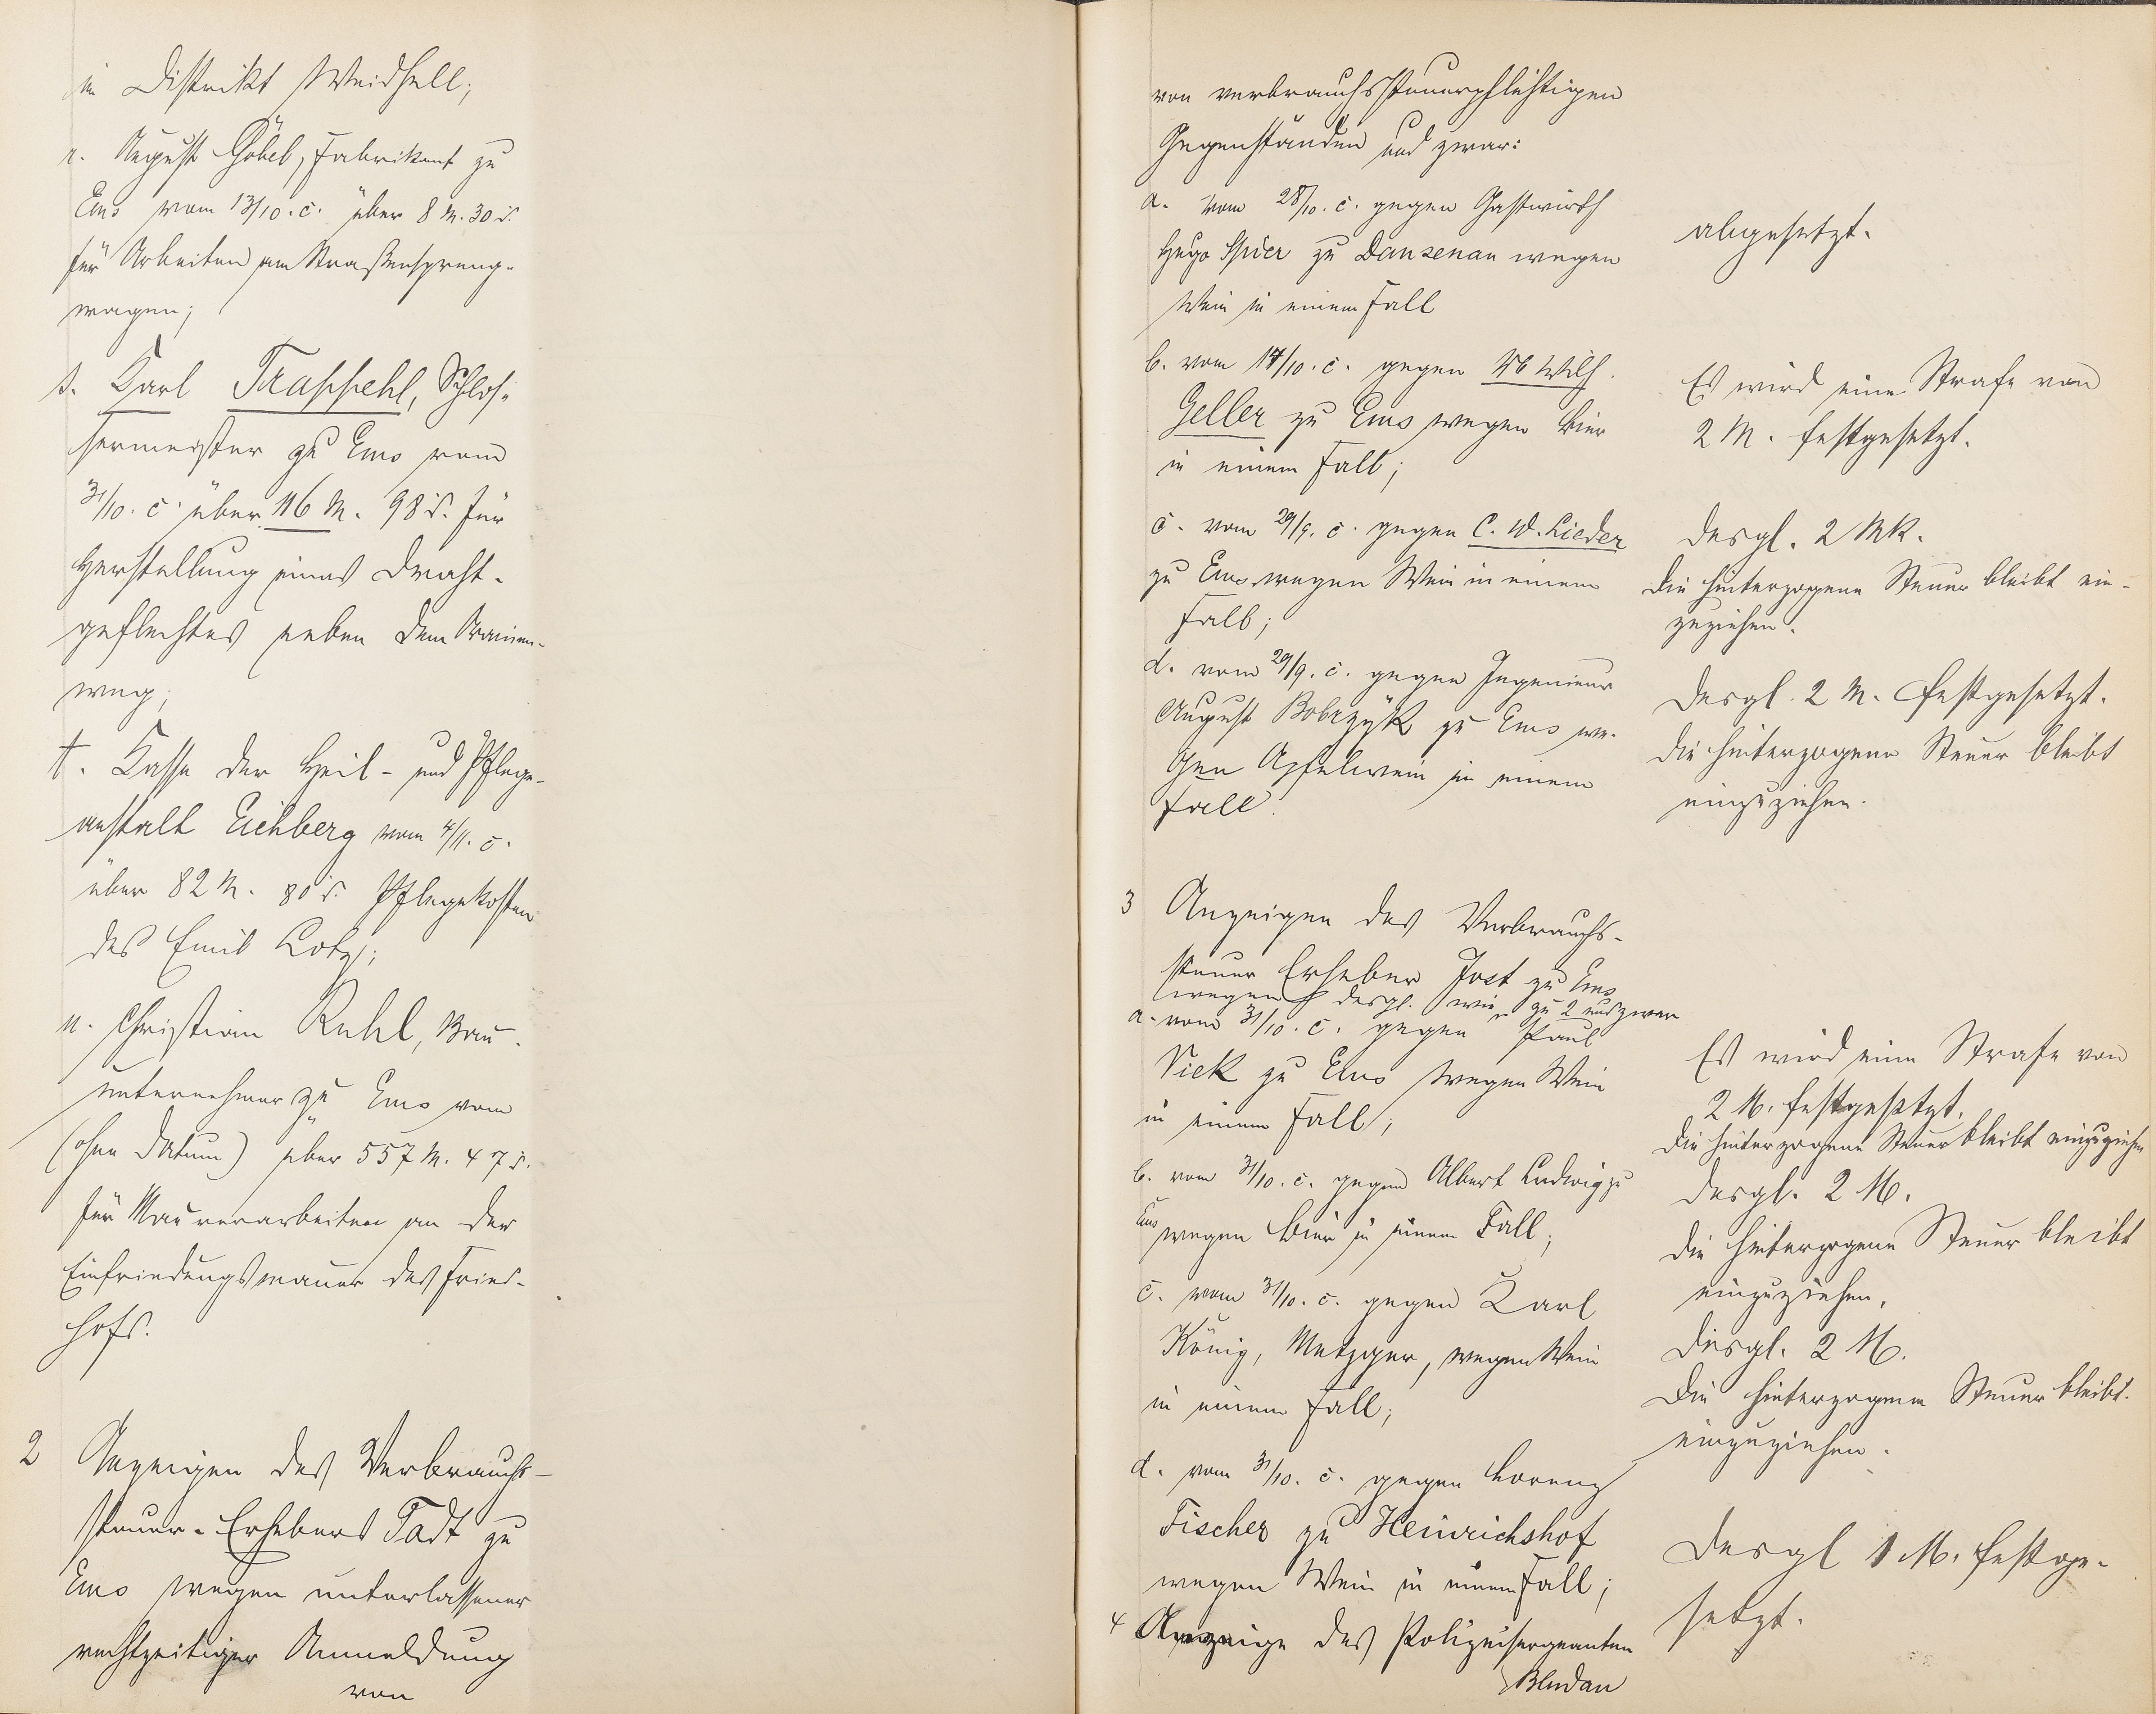 im Distrikt Weidhell;
r. August Göbel, Fabrikant zu
Ems vom 13/10. c. über 8 M. 30 d.
für Arbeiten am Straßenspreng-
wagen;
s. Karl Trappehl, Schlos-
sermeister zu Ems vom
31/10. c. über 116 M. 98 d. für
Herstellung eines Draht-
geflechtes neben dem
weg;
t. Kasse der Heil- und Pflege-
anstalt Eichberg vom 4/11. c.
über 82 M. 80 d. Pflegekosten
des Emil Lotz;
u. Christian Ruhl, Bau-
unternehmer zu Ems vom
(ohne Datum) über 557 M. 47 d.
für Maurerarbeiten an der
Einfriedungsmauer des Fried-
hofs.
2 Anzeigen des Verbrauchs-
steuer-Erhebers Tadt zu
Ems wegen unterlassener
rechtzeitiger Anmeldung
von
von verbrauchssteuerpflichtigen
Gegenständen und zwar:
a. vom 28/10. c. gegen Gastwirth
Hugo Spier zu Dausenau wegen
Wein in einem Fall
abgesetzt.
b. vom 17/10. c. gegen Wb Wilh.
Geller zu Ems wegen Bier
in einem Fall;
Es wird eine Strafe von
2 M. festgesetzt.
c. vom 29/9. c. gegen C. W. Lieder
zu Ems wegen Wein in einem
Fall;
desgl. 2 Mk.
Die hinterzogene Steuer bleibt ein-
zuziehen.
d. vom 29/9. c. gegen Ingenieur
August Bobrzyk zu Ems we-
gen Apfelwein in einem
Fall.
Desgl. 2 M. festgesetzt.
Die hinterzogene Steuer bleibt
einzuziehen.
3 Anzeigen des Verbrauchs-
steuer Erheber Jost zu Ems
wegen desgl. wie zu 2 und zwar
a. vom 31/10. c. gegen Paul
Vick zu Ems wegen Wein
in einem Fall;
Es wird eine Strafe von
2 M. festgesetzt.
Die hinterzogene Steuer bleibt einzuziehen
b. vom 31/10. c. gegen Albert Ludwig zu
Ems wegen Bier in einem Fall;
desgl. 2 M.
Die hinterzogene Steuer bleibt
einzuziehen.
c. vom 31/10. c. gegen Karl
König, Metzger, wegen Wein
in einem Fall;
desgl. 2 M.
Die hinterzogene Steuer bleibt
einzuziehen.
d. vom 31/10. c. gegen Lorenz
Fischer zu Heinrichshof
wegen Wein in einem Fall;
Desgl 1 M. festge-
setzt.
4 Anzeige des Polizeisergeanten
Bludau